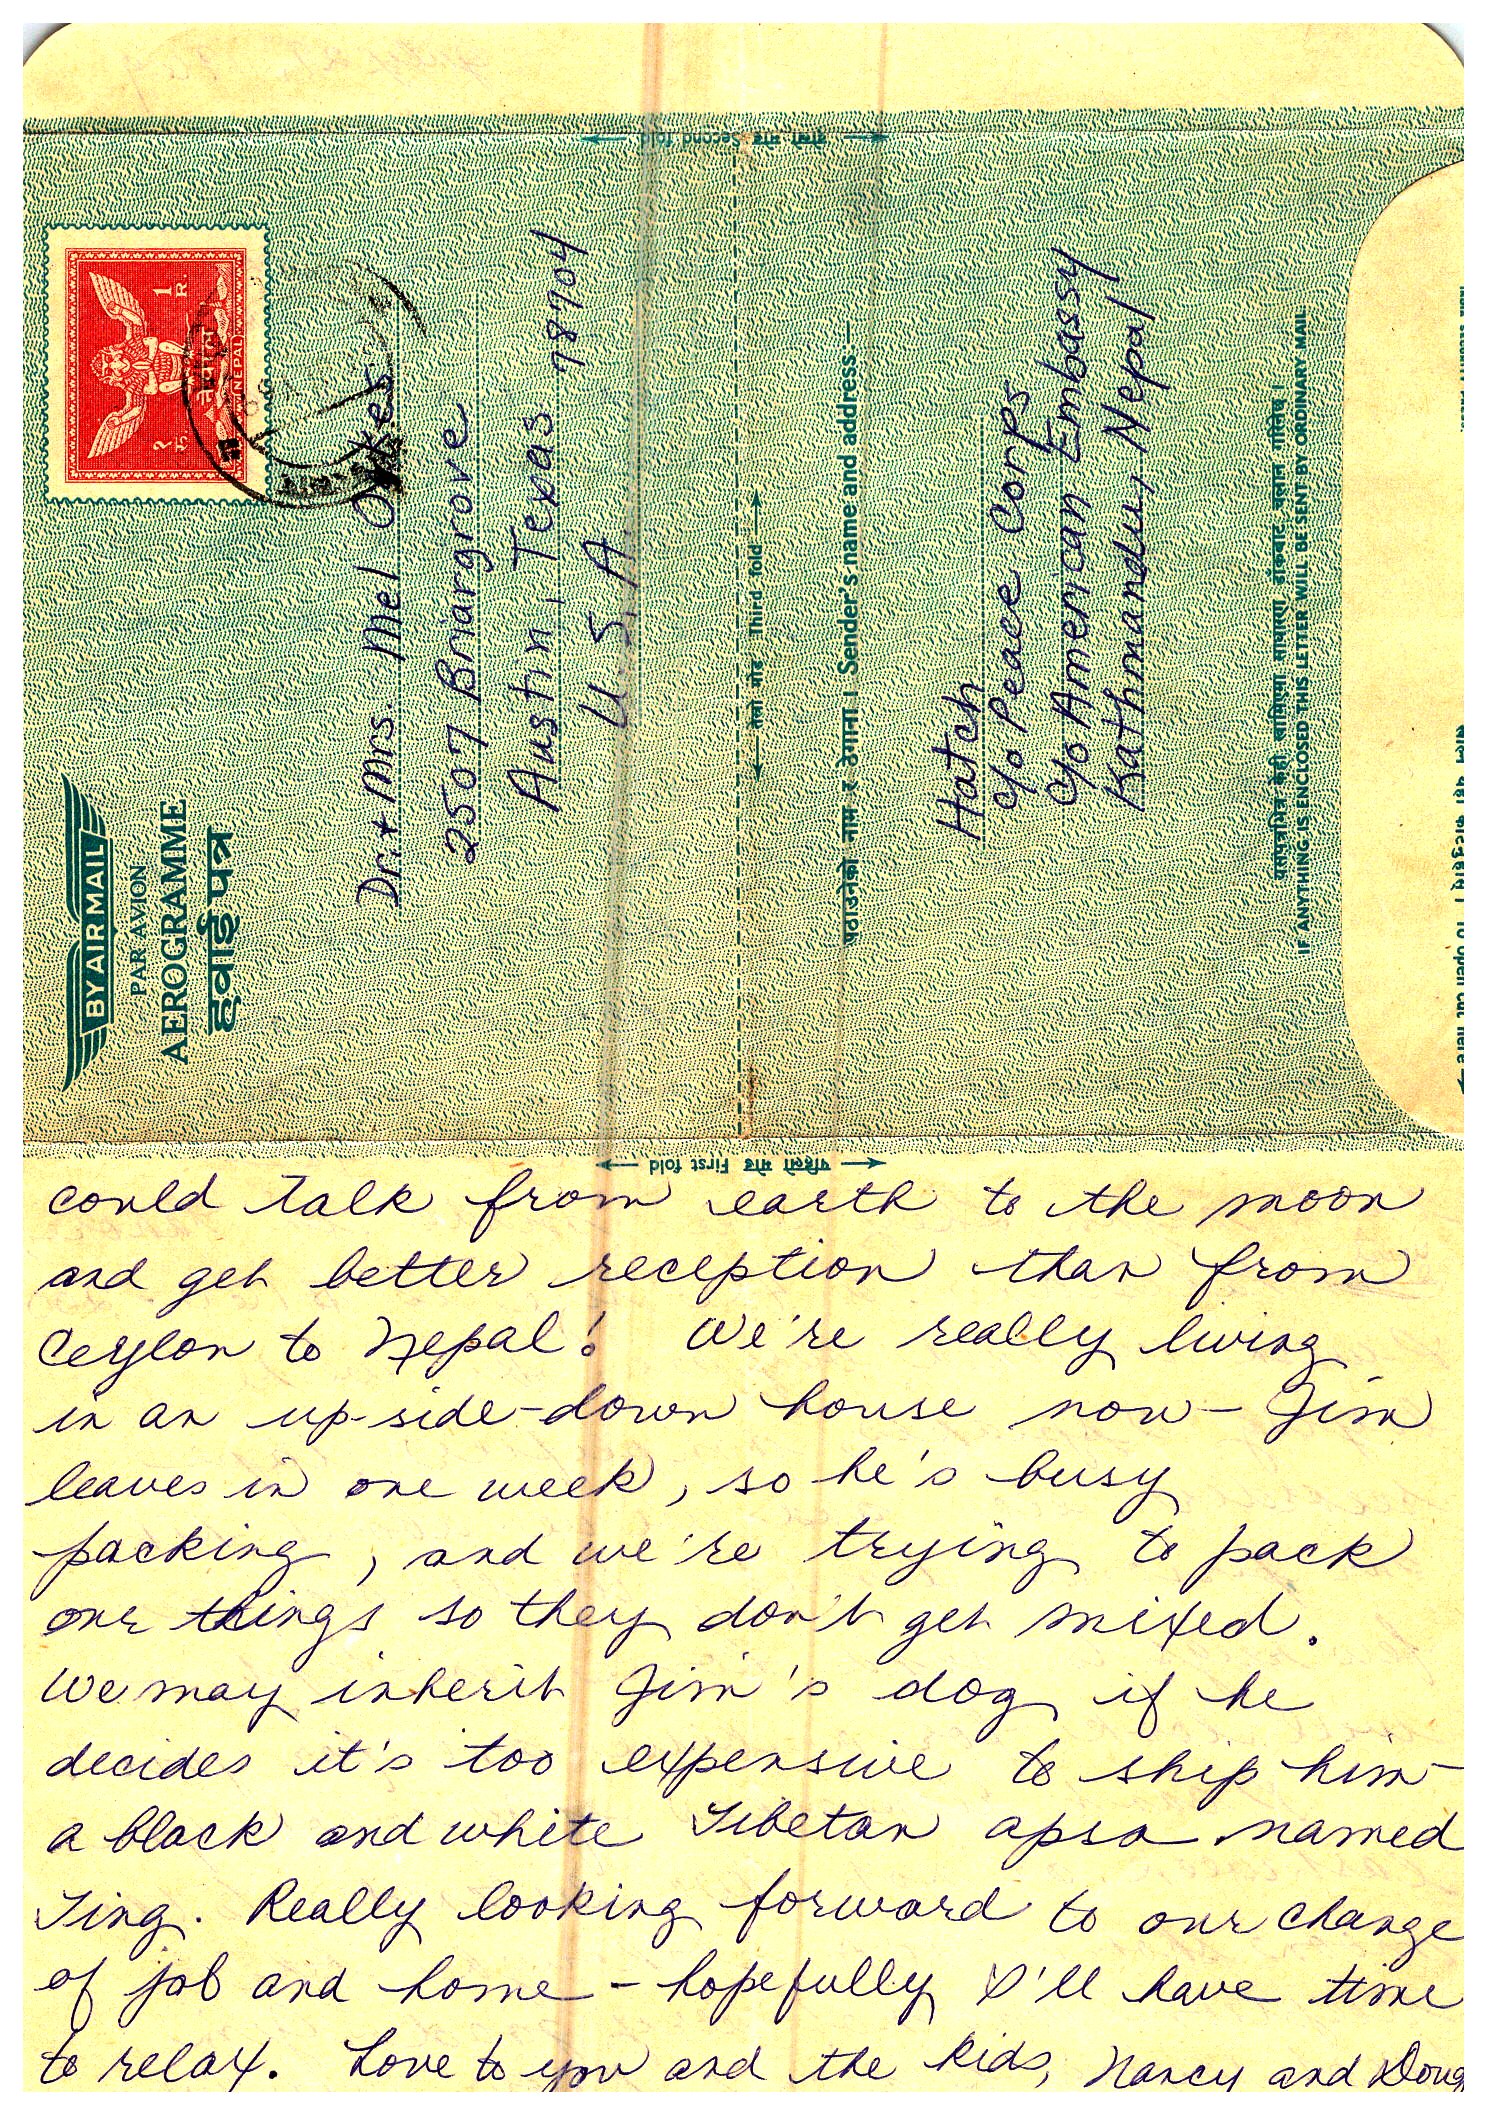 BY AIR MAIL
PAR AVION
AEROGRAMME
हवाई पत्र
नेपाल
NEPAL
१ रु.
1 R.
Dr. + Mrs. Mel Oakes
2507 Briargrove
Austin, Texas 78704
U.S.A
दोस्रो मोड Second fold
तेस्रो मोड Third fold
पठाउनेको नाम र ठेगाना । Sender's name and address:—
Hatch
c/o Peace Corps
c/o American Embassy
Kathmandu, Nepal
यसपत्रभित्र केही राखिएमा साधारण डाँकबाट चलान गरिनेछ ।
IF ANYTHING IS ENCLOSED THIS LETTER WILL BE SENT BY ORDINARY MAIL
To open cut here
पहिलो मोड First fold
could talk from earth to the moon
and get better reception than from
Ceylon to Nepal! We're really living
in an up-side-down house now – Jim
leaves in one week, so he's busy
packing, and we're trying to pack
our things so they don't get mixed.
We may inherit Jim's dog if he
decides it's too expensive to ship him –
a black and white Tibetan apso named
Ting. Really looking forward to our change
of job and home – hopefully I'll have time
to relax. Love to you and the kids, Nancy and Doug